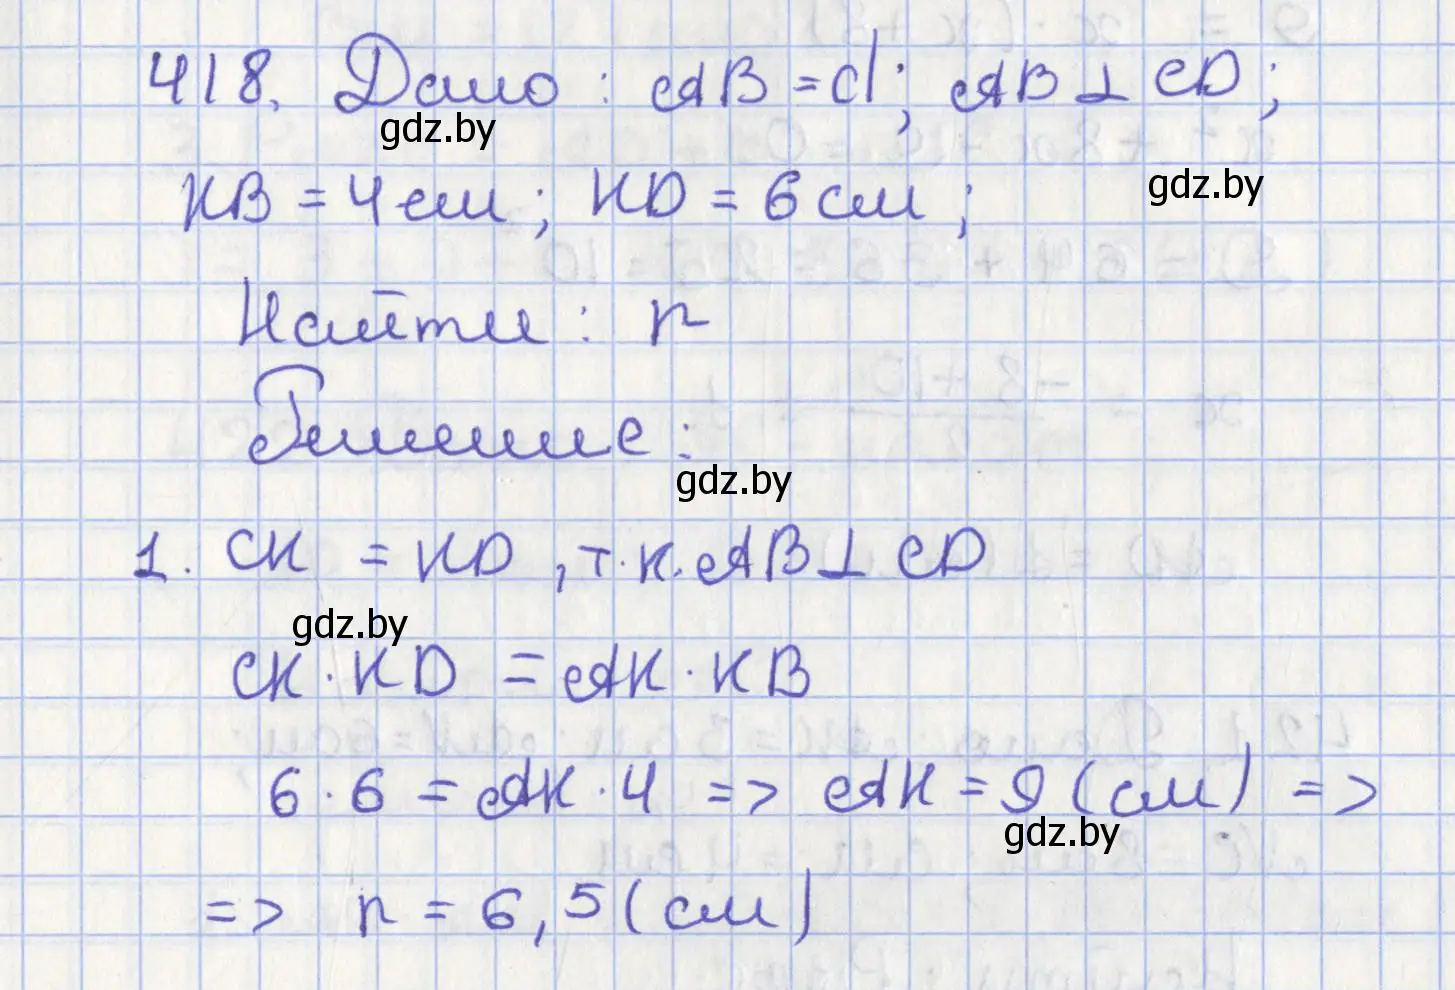 418. Дано: AB = d; AB ⊥ CD;
gdz.by
KB = 4 см; KD = 6 см;
gdz.by
Найти: r
Решение:
gdz.by
1. CK = KD, т.к. AB ⊥ CD
gdz.by
CK · KD = AK · KB
6 · 6 = AK · 4 => AK = 9 (см) =>
gdz.by
=> r = 6,5 (см)